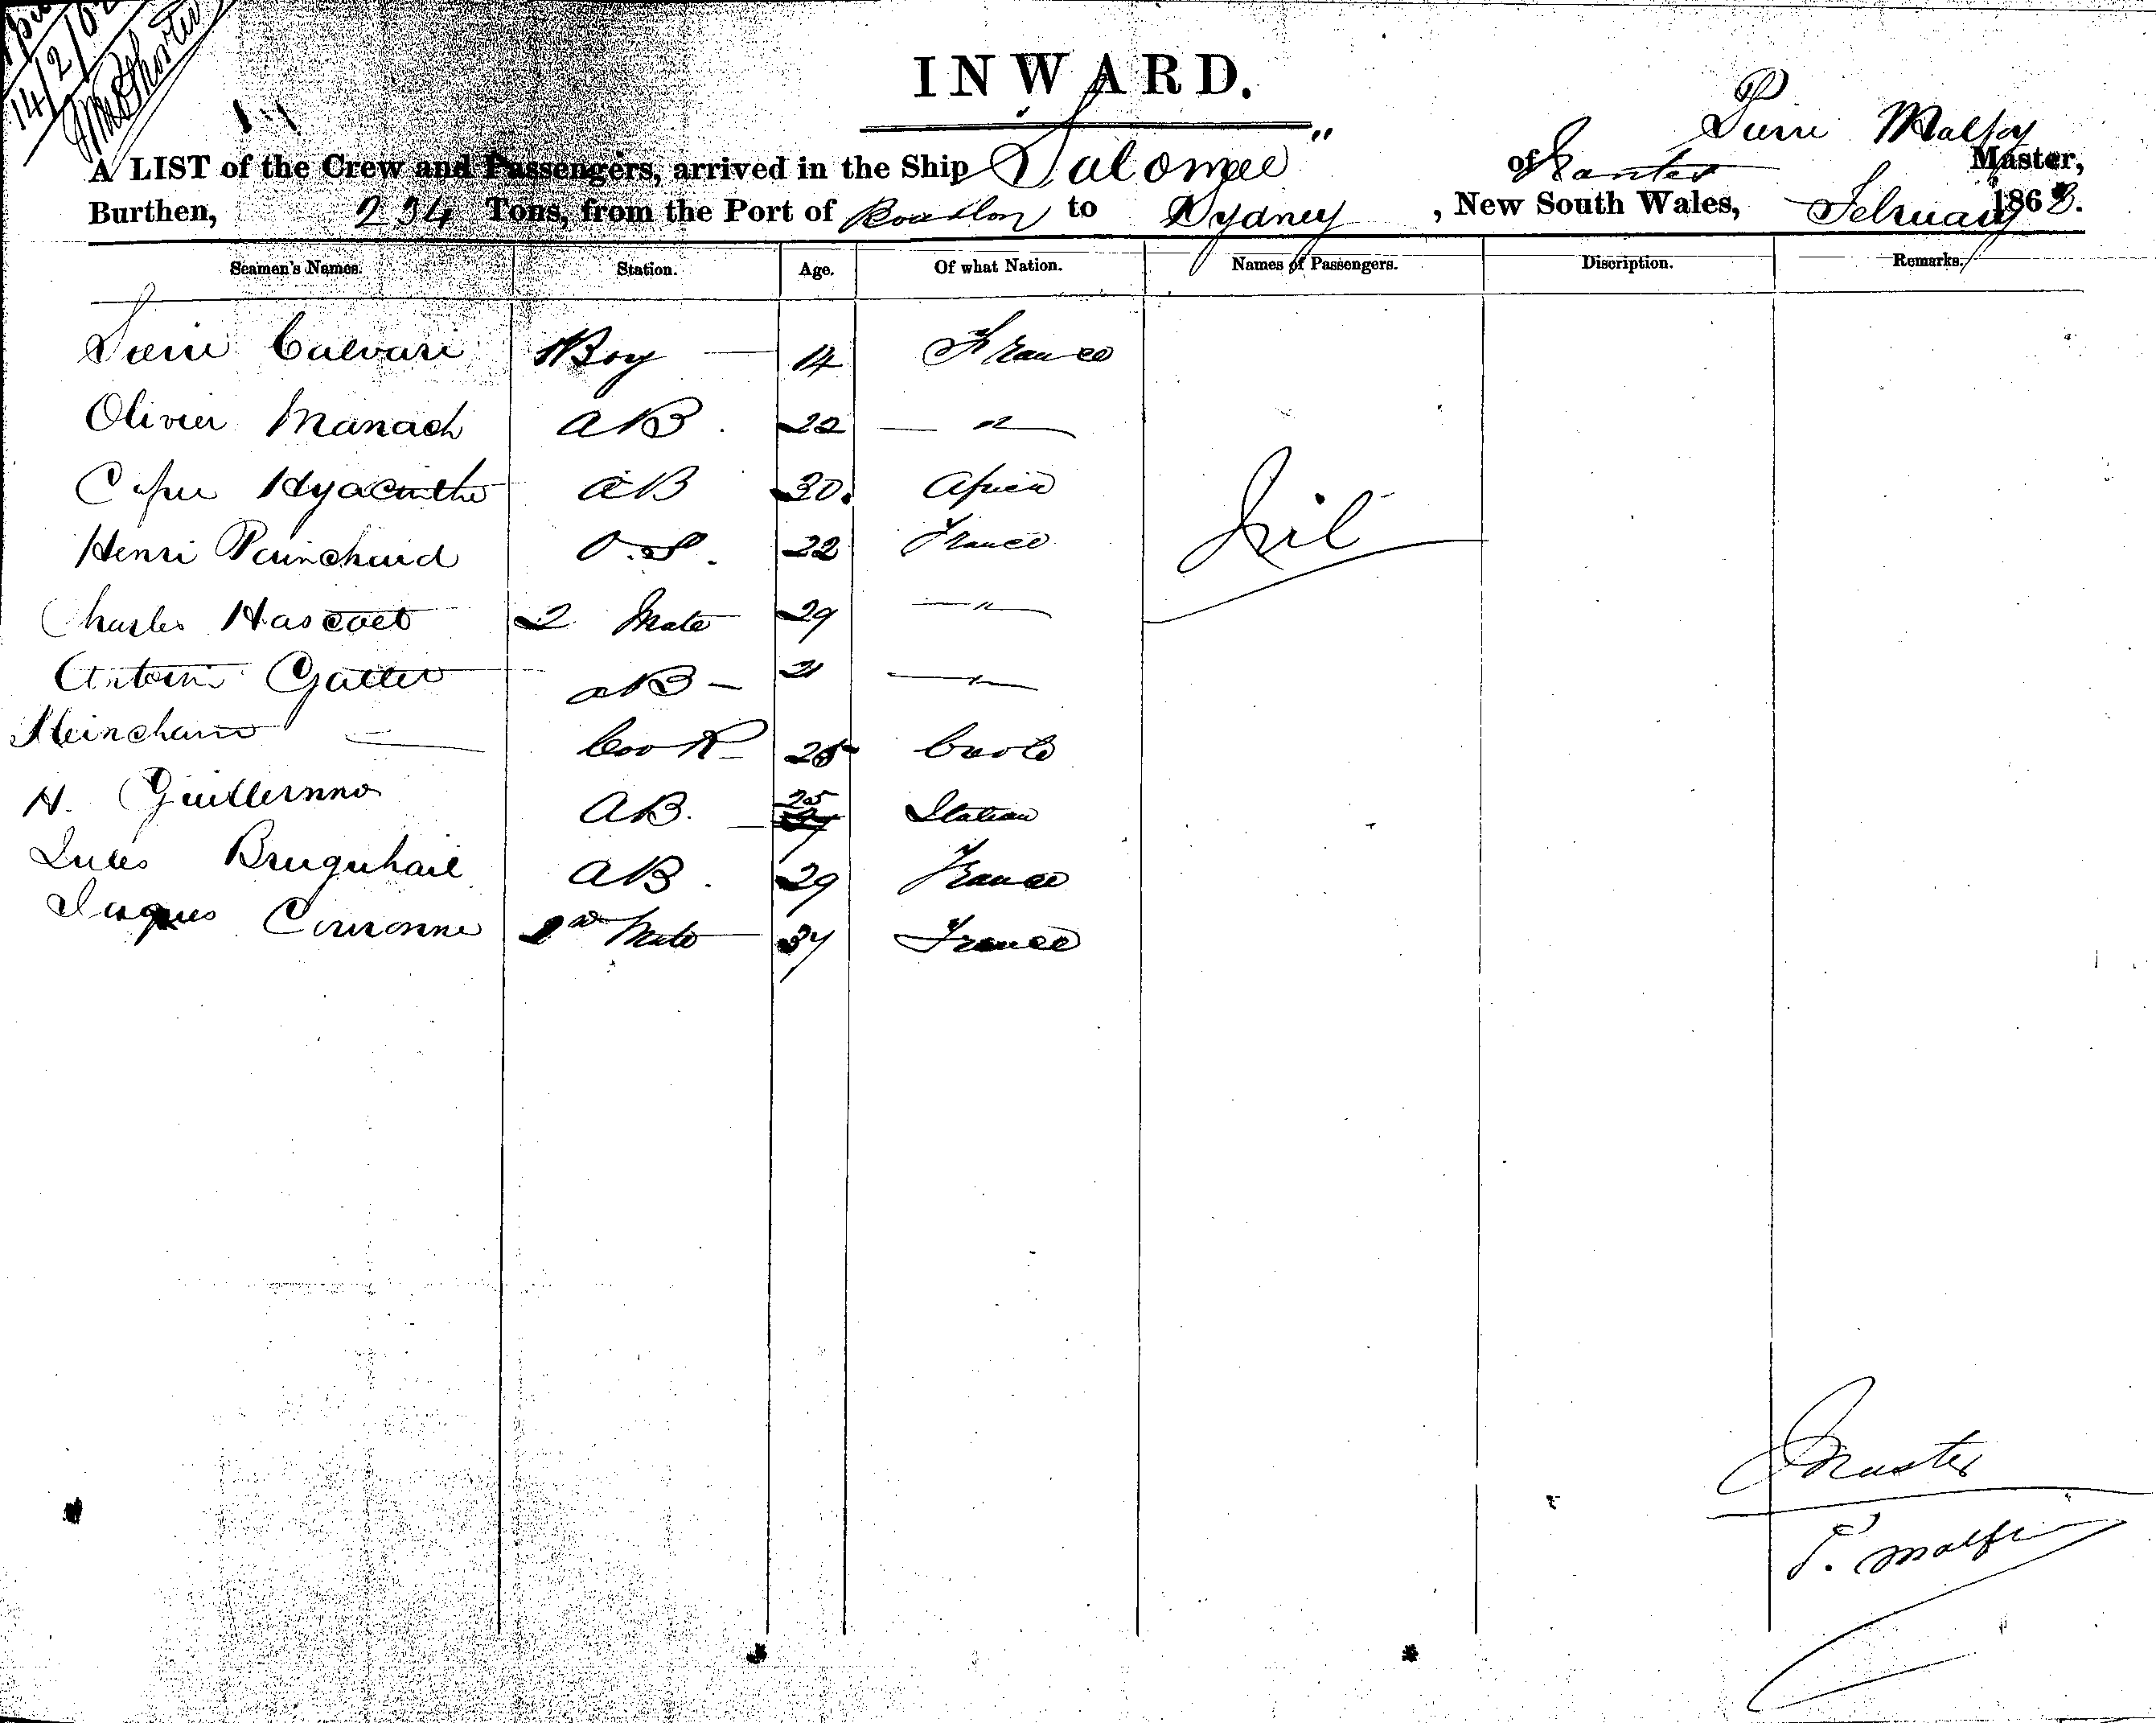 14/2/62
INWARD.
A LIST of the Crew and Passengers, arrived in the Ship "Salomee" of Nantes Pierre Malfoy Master,
Burthen, 234 Tons, from the Port of Bourbon to Sydney, New South Wales, February 1862.
Seamen's Names. Station. Age. Of what Nation. Names of Passengers. Discription. Remarks.
Pierre Calvari Boy — 14 France
Olivier Manach AB. 22 — " —
Hyacinthe AB 30. Africa
Henri Painchaud O.S. 22 France Nil
Charles Hascoet 2 Mate 29 — " —
Antoin AB — 21 — " —
— Cook 25 Creole
H. Guillernno AB. 25 Italian
Jules Bruguhail AB. 29 France
Jaques Couronne 2nd Mate 37 France
Master
P. Malfoy